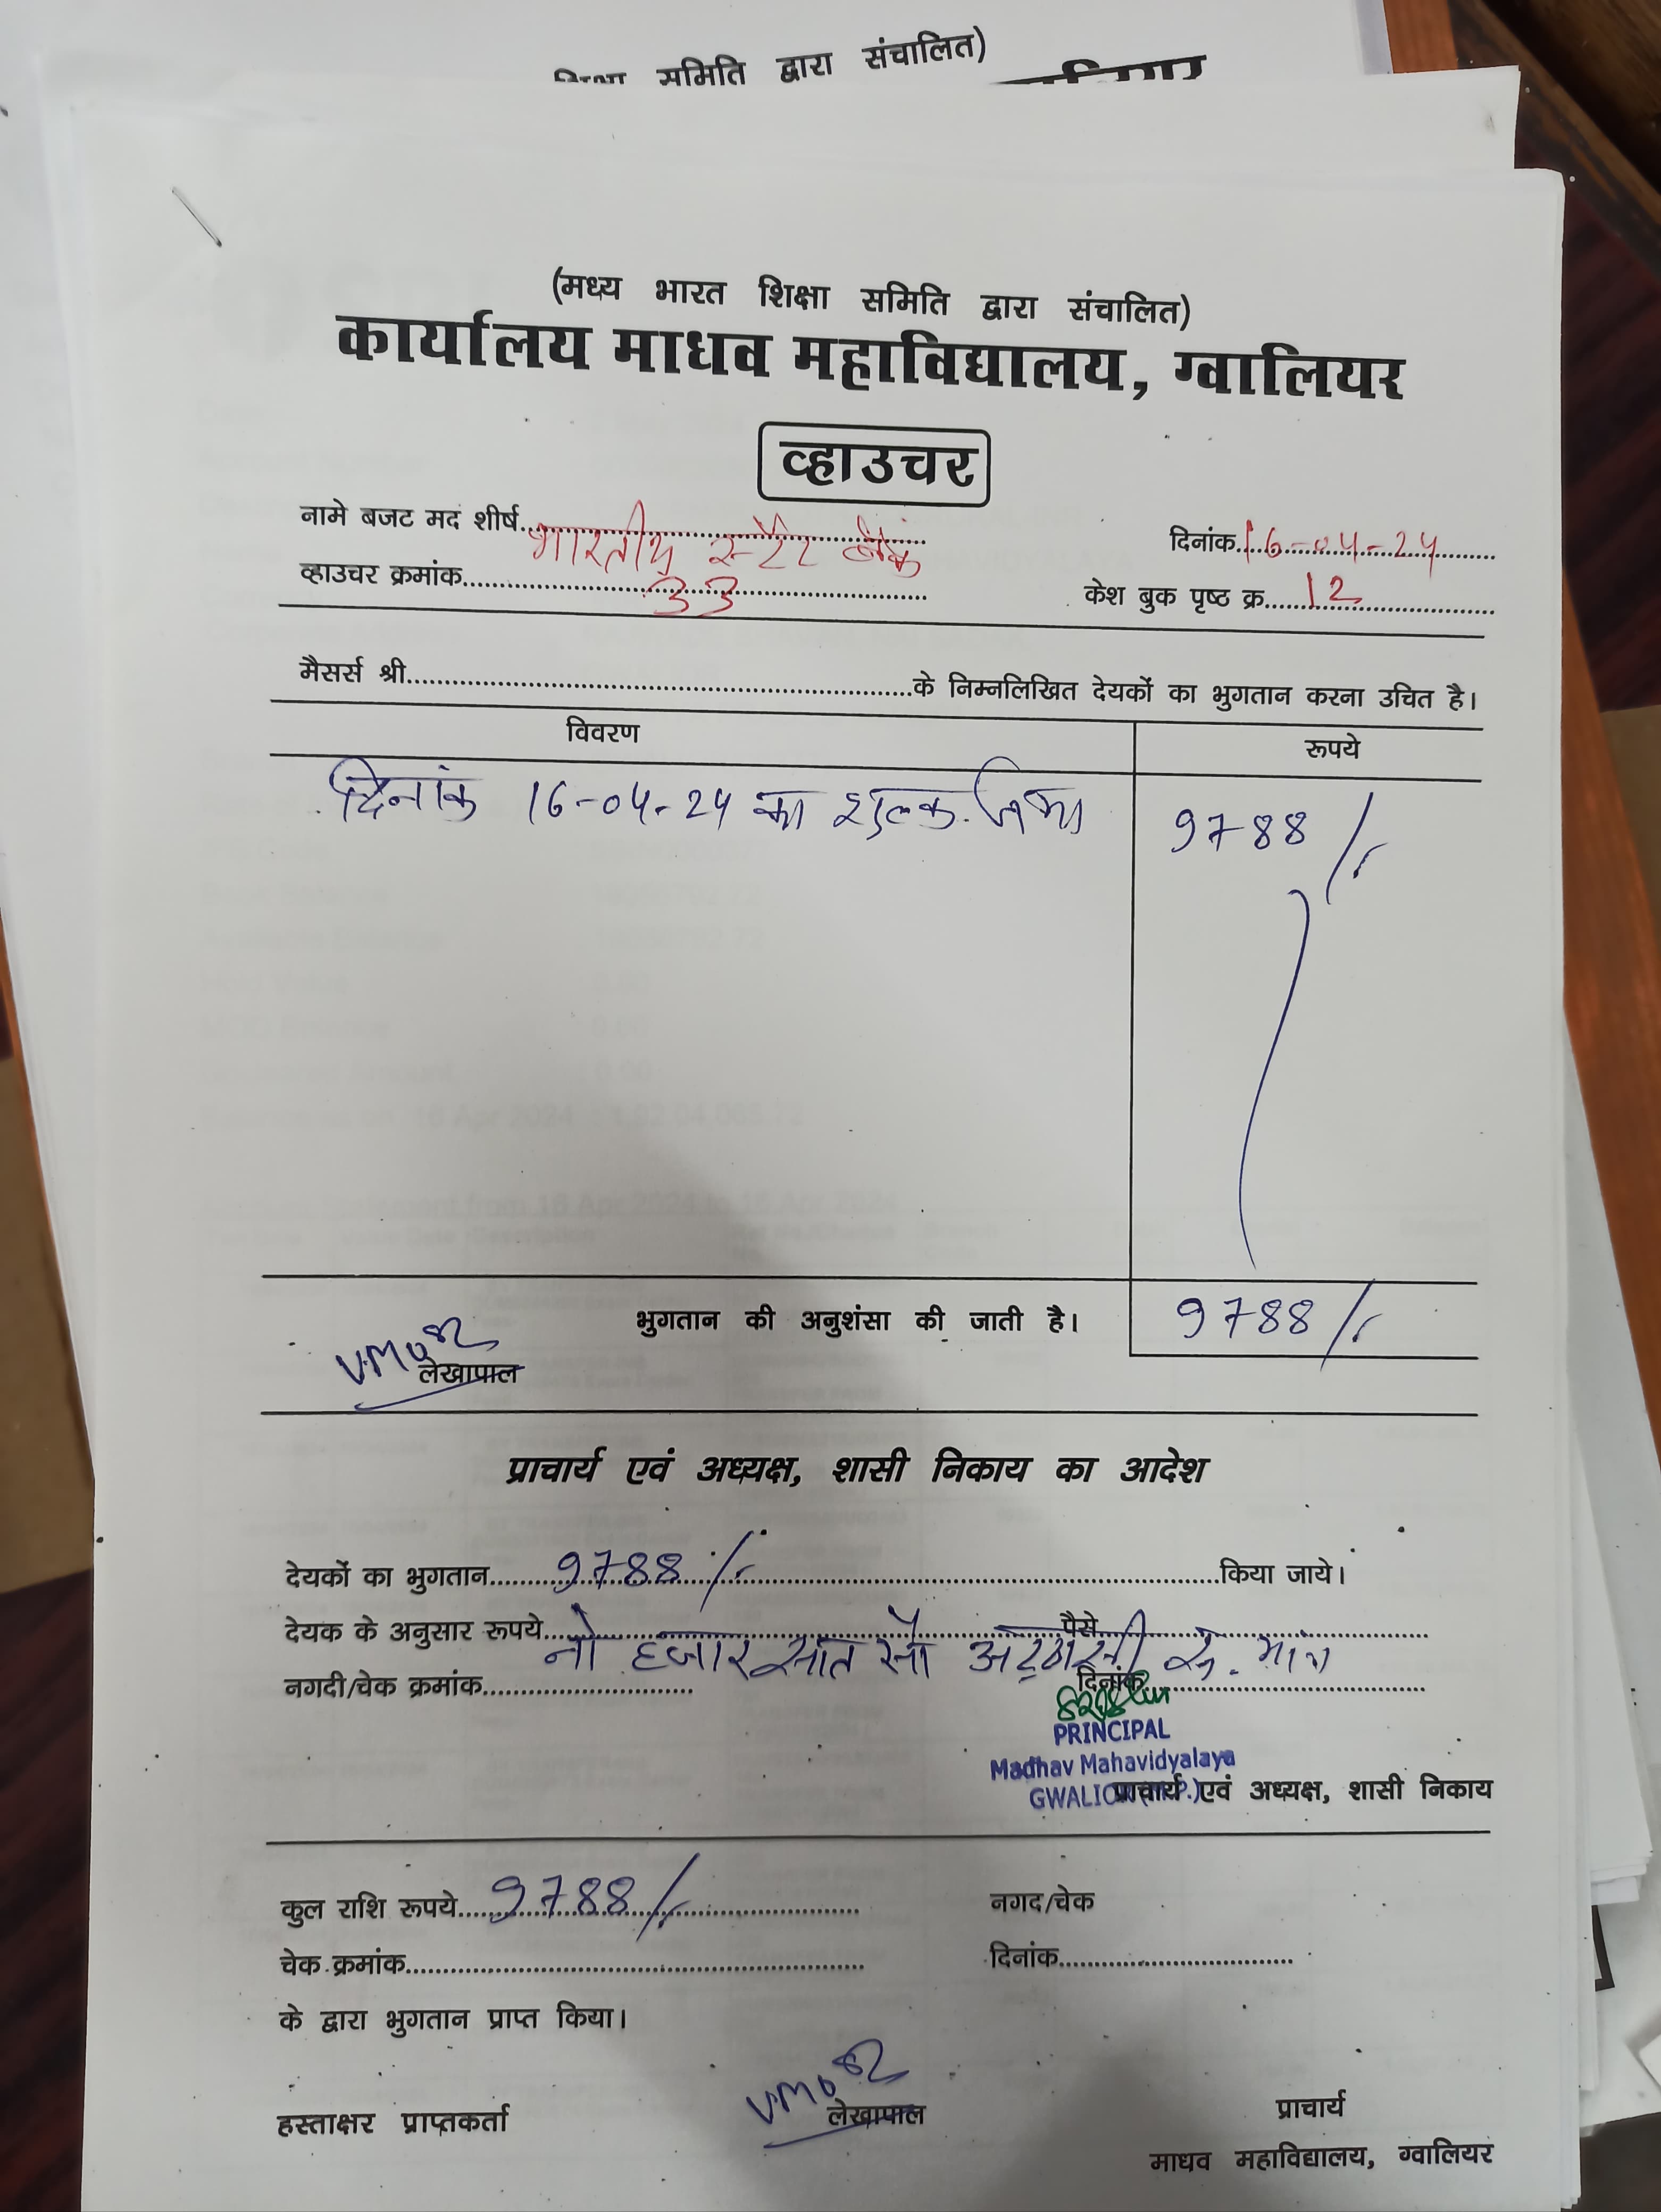 शिक्षा समिति द्वारा संचालित)
(मध्य भारत शिक्षा समिति द्वारा संचालित)
कार्यालय माधव महाविद्यालय, ग्वालियर
व्हाउचर
नामे बजट मद शीर्ष भारतीय स्टेट बैंक दिनांक 16-04-24
व्हाउचर क्रमांक 33 केश बुक पृष्ठ क्र. 12
मैसर्स श्री के निम्नलिखित देयकों का भुगतान करना उचित है।
विवरण रूपये
दिनांक 16-04-24 का शुल्क जमा 9788/-
भुगतान की अनुशंसा की जाती है। 9788/-
लेखापाल
प्राचार्य एवं अध्यक्ष, शासी निकाय का आदेश
देयकों का भुगतान 9788/- किया जाये।
देयक के अनुसार रूपये नो हजार सात सौ अट्ठासी रू. मात्र पैसे
नगदी/चेक क्रमांक दिनांक
PRINCIPAL
Madhav Mahavidyalaya
GWALIOR (M.P.)
प्राचार्य एवं अध्यक्ष, शासी निकाय
कुल राशि रूपये 9788/- नगद/चेक
चेक क्रमांक दिनांक
के द्वारा भुगतान प्राप्त किया।
हस्ताक्षर प्राप्तकर्ता लेखापाल प्राचार्य
माधव महाविद्यालय, ग्वालियर